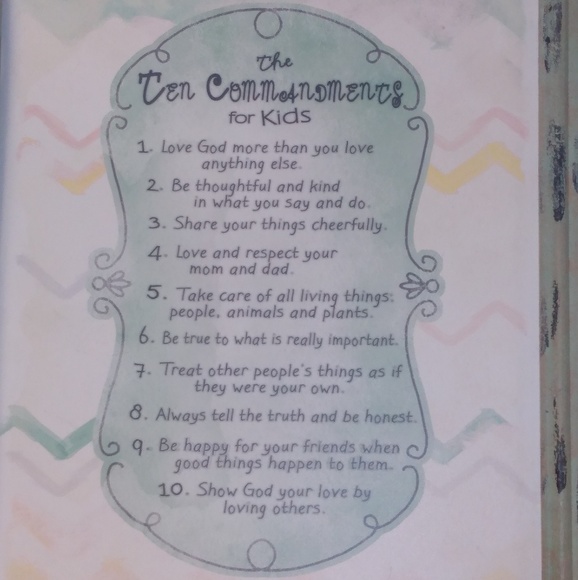 the
Ten Commandments
for Kids
1. Love God more than you love
anything else.
2. Be thoughtful and kind
in what you say and do.
3. Share your things cheerfully.
4. Love and respect your
mom and dad.
5. Take care of all living things:
people, animals and plants.
6. Be true to what is really important.
7. Treat other people's things as if
they were your own.
8. Always tell the truth and be honest.
9. Be happy for your friends when
good things happen to them.
10. Show God your love by
loving others.